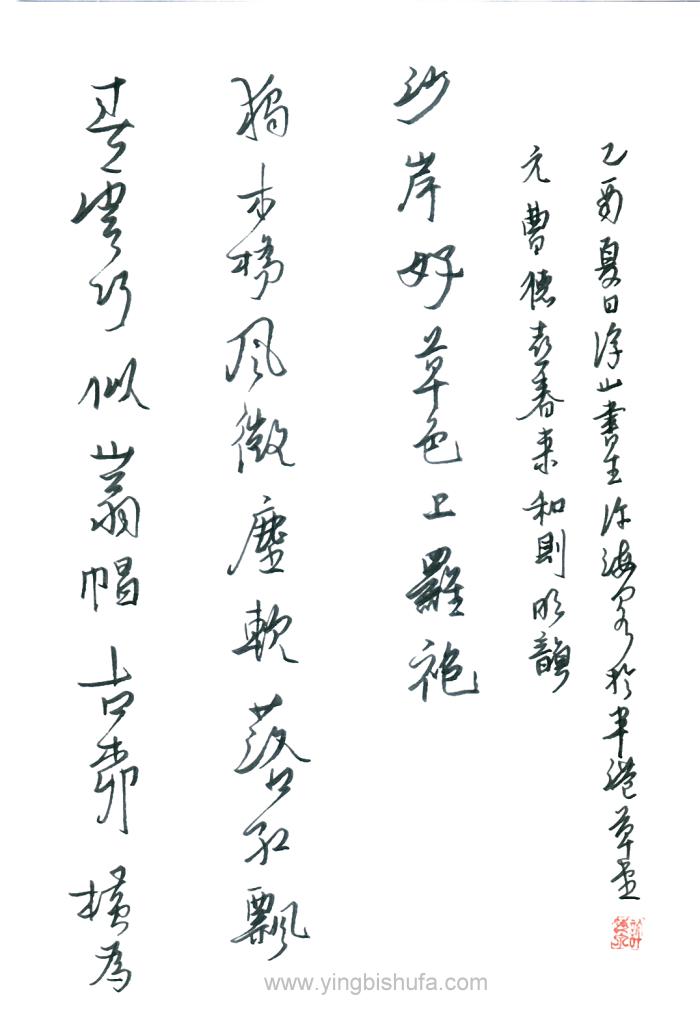 春雲巧似山翁帽古柳橫為
獨木橋風微塵軟落紅飄
沙岸好草色上羅袍
元曹德喜春来和則明韻
乙酉夏日浮山書生許海泉於半港草堂
www.yingbishufa.com